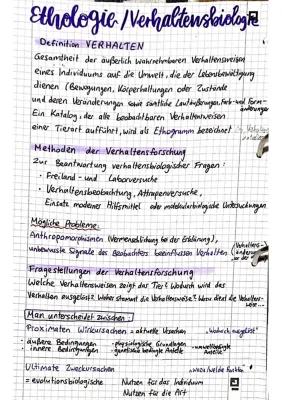 Ethologie/Verhaltensbiologie
Definition VERHALTEN
Gesamtheit der äußerlich wahrnehmbaren Verhaltensweisen
eines Individuums auf die Umwelt, die der Lebensbewältigung
dienen (Bewegungen, Körperhaltungen oder Zustände
und deren Veränderungen sowie sämtliche Lautäußerungen, Farb- und Form-
änderungen
Ein Katalog, der alle beobachtbaren Verhaltensweisen
einer Tierart aufführt, wird als Ethogramm bezeichnet
Methoden der Verhaltensforschung
Zur Beantwortung verhaltensbiologischer Fragen:
• Freiland- und Laborversuche
• Verhaltensbeobachtung, Attrapenversuche,
Einsatz moderner Hilfsmittel oder molekularbiologische Untersuchungen
Mögliche Probleme:
Anthropomorphismen (Vermenschlichung bei der Erklärung),
unbewusste Signale des Beobachters beeinflussen Verhalten
Fragestellungen der Verhaltensforschung
Welche Verhaltensweisen zeigt das Tier? Wodurch wird das
Verhalten ausgelöst? Woher stammt die Verhaltensweise? Wozu dient die Verhaltens-
weise...
Man unterscheidet zwischen:
Proximaten Wirkursachen = aktuelle Ursachen "Wodurch ausgelöst"
- äußere Bedingungen - physiologische Grundlagen - umweltbedingte
- innere Bedingungen - genetisch bedingte Anteile Anteile
Ultimate Zweckursachen
= evolutionsbiologische Nutzen für das Individuum
Nutzen für die Art